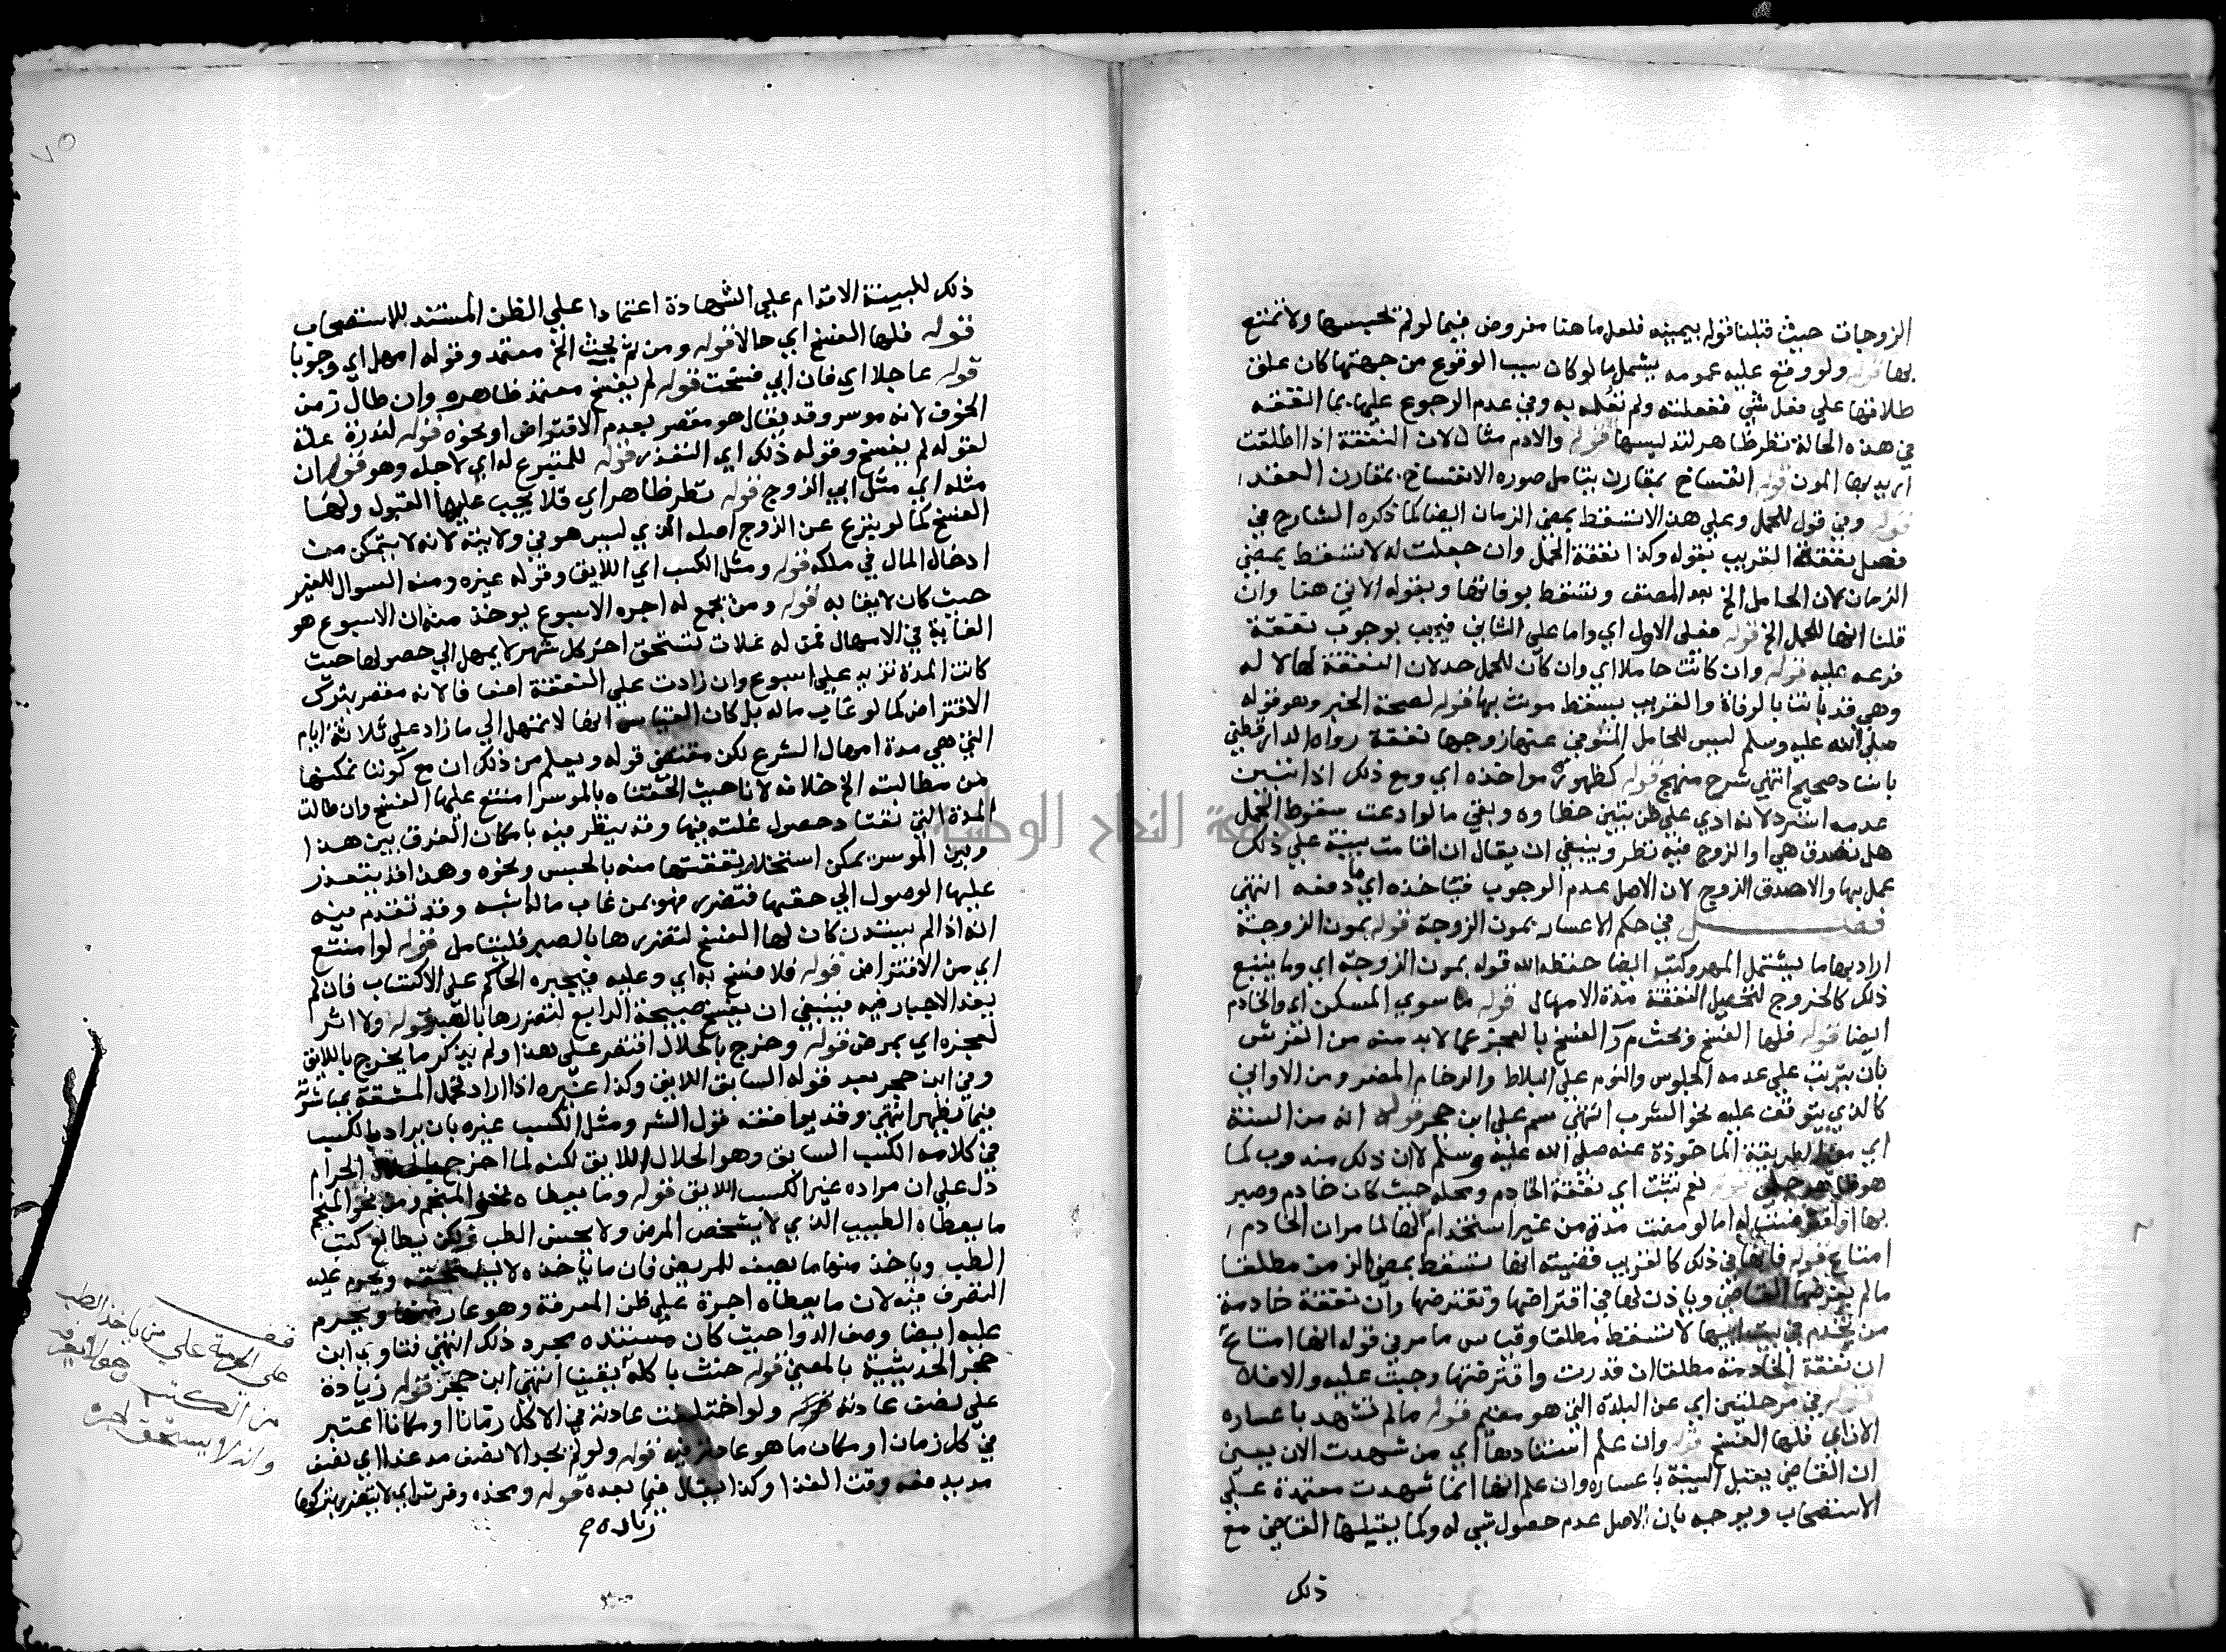 الزوجات حيث قبلنا قوله بيمينه فلعل ما هنا مفروض فيما لو لم تحبسها ولا تمتع
بها قوله ولو وقع عليه عمومه يشمل ما لو كان سبب الوقوع من جهتها كان علق
طلاقها علي فعل شي ففعلته ولم تعلمه به وفي عدم الرجوع عليها بما انفقه
في هذه الحالة نظر ظاهر لتدليسها قوله والادم مثال لان النفقة اذا اطلقت
اريد بها المون قوله انفساخ بمقارن يتامل صوره الانفساخ بمقارن العقد
قوله وفي قول للحمل وعلي هذا لا تسقط بمضي الزمان ايضا كما ذكره الشارح في
فصل نفقة القريب بقوله وكذا نفقة الحمل وان جعلت له لا تسقط بمضي
الزمان لان الحامل الخ بعد المصنف وتسقط بوفاتها وبقوله الاتي هنا وان
قلنا انها للحمل الخ قوله فعلي الاول اي واما علي الثاني فيجب بوجوب نفقة
فرعه عليه قوله وان كانت حاملا اي وان كان للحمل حد لان النفقة لها لا له
وهي قد بانت بالوفاة والقريب يسقط مونته بها قوله لصحة الخبر وهو قوله
صلي الله عليه وسلم ليس للحامل المتوفي عنها زوجها نفقة رواه الدارقطني
باسناد صحيح انتهي شرح منهج قوله كظهوره مواخذه اي ومع ذلك اذا تبين
عدمه استرد لانه ادي علي ظن تبين خطاوه وبقي ما لو ادعت سقوط الحمل
هل تصدق هي او الزوج فيه نظر وينبغي ان يقال ان اقامت بينة علي ذلك
عمل بها والا صدق الزوج لان الاصل عدم الوجوب فيتاخذه اي ما دفعه انتهي
فصل في حكم الاعسار بمون الزوجة قوله بمون الزوجة
اراد بها ما يشمل المهر وكتب ايضا حفظه الله قوله بمون الزوجة اي وما يتبع
ذلك كالخروج لتحصيل النفقة مدة الامهال قوله ما سوي المسكن اي والخادم
ايضا قوله فلها الفسخ وبحث م ر الفسخ بالعجز عما لا بد منه من الفرش
بان يترتب علي عدمه الجلوس والنوم علي البلاط والرخام المضر ومن الاواني
كالذي يتوقف عليه نحو الشرب انتهي سم علي ابن حجر قوله انه من السنة
اي من الطريقة الماخوذة عنه صلي الله عليه وسلم لا ان ذلك مندوب كما
هو ظاهر جلي نعم تثبت اي نفقة الخادم ومحله حيث كان خادم وصبر
بها او اقترضت له اما لو مضت مدة من غير استخدام
امتاع قوله فانها في ذلك كالقريب قضيته انها تسقط بمضي الزمن مطلقا
ما لم يفرضها القاضي وياذن لها في اقتراضها وتقترضها وان نفقة خادمة
من تخدم في بيت ابيها لا تسقط مطلقا وقياس ما مر في قوله انها امتاع
ان نفقة الخادمة مطلقا ان قدرت واقترضتها وجبت عليه والا فلا
قوله في مرحلتين اي عن البلدة التي هو مقيم قوله ما لم تشهد باعساره
الان اي فلها الفسخ قوله وان علم استنادها اي من شهدت الان ببين
ان القاضي يقبل البينة باعساره وان علم انها انما شهدت معتمدة علي
الاستصحاب ويوجه بان الاصل عدم حصول شي له وكما يقبلها القاضي مع
ذلك
٧٥
ذلك للبينة الاقدام علي الشهادة اعتمادا علي الظن المستند للاستصحاب
قوله فلها الفسخ اي حالا قوله ومن ثم بحث الخ معتمد وقوله امهل اي وجوبا
قوله عاجلا اي فان ابي فسخت قوله لم يفسخ معتمد ظاهره وان طال زمن
الخوف لانه موسر وقد يقال هو مقصر بعدم الاقتراض او نحوه قوله لندرة علة
لقوله لم يفسخ وقوله ذلك اي التعذر قوله للمتبرع له اي لاجله وهو قوله ان
مثله اي مثل ابي الزوج قوله نظر ظاهر اي فلا يجب عليها القبول ولها
الفسخ كما لو تبرع عن الزوج اصله الذي ليس هو في ولايته لانه لا يتمكن من
ادخال المال في ملكه قوله ومثل الكسب اي اللايق وقوله غيره ومنه السوال للغير
حيث كان لايقا به قوله ومن يجمع له اجره الاسبوع يوخذ منه ان الاسبوع هو
الغاية في الامهال فمن له غلات تستحق اخر كل شهر لا يمهل الي حصولها حيث
كانت المدة تزيد علي اسبوع وان زادت علي النفقة اضعافا لانه مقصر بترك
الاقتراض كما لو غاب ماله بل كان القياس انها لا تمهل الي ما زاد علي ثلاثة ايام
التي هي مدة امهال الشرع لكن مقتضي قوله ويعلم من ذلك ان مع كوننا نمكنها
من مطالبته الخ خلافه لانا حيث الحقناه بالموسر امتنع عليها الفسخ وان طالت
المدة التي نفتا د حصول غلته فيها وقد ينظر فيه بامكان الفرق بين هذا
وبين الموسر يمكن استخلاص نفقتها منه بالحبس ونحوه وهذا قد يتعذر
عليها الوصول الي حقها فتضرر فهو بمن غاب ماله اشبه وقد تقدم فيه
انه اذا لم يستدن كان لها الفسخ لتضررها بالصبر فليتامل قوله لو امتنع
اي من الاقتراض قوله فلا فسخ به اي وعليه فيجبره الحاكم علي الاكتساب فان لم
يفد الاجبار فيه فينبغي ان يفسخ صبيحة الرابع لتضررها بالصبر قوله ولا اثر
لعجزه اي بمرض قوله وخرج بالحلال اقتصر علي هذا ولم يذكر ما يخرج باللايق
وفي ابن حجر بعد قوله السابق اللايق وكذا غيره اذا اراد تحمل المشقة بمباشرته
فيما يظهر انتهي وقد يوافقه قول الشر ومثل الكسب غيره بان يراد بالكسب
في كلامه الكسب السابق وهو الحلال اللايق لكنه لما اخرج بالحلال الحرام
دل علي ان مراده غير الكسب اللايق قوله وما يعطاه نحو المنجم ومن نحو المنجم
ما يعطاه الطبيب الذي لا يشخص المرض ولا يحسن الطب ولكن يطالع كتب
الطب وياخذ منها ما يصفه للمريض فان ما ياخذه لا يستحقه ويحرم عليه
التصرف فيه لان ما يعطاه اجرة علي ظن المعرفة وهو عار منها ويحرم
عليه ايضا وصف الدوا حيث كان مستنده مجرد ذلك انتهي فتاوي ابن
حجر الحديثية بالمعني قوله حنث باكله يقينا انتهي ابن حجر قوله زيادة
علي نصف عادته ولو اختلفت عادته في الاكل زمانا او مكانا اعتبر
في كل زمان او مكان ما هو عادته فيه قوله ولو لم يجد الا نصف مد غدا اي نصف
مد يدفعه وقت الغدا وكذا يقال فيما بعده قوله ومخذه وفرش اي لا يتضرر بتركها
زياده م
قف
علي الحرمة علي من ياخذ الطب
من الكتب
وانه لا يستحق